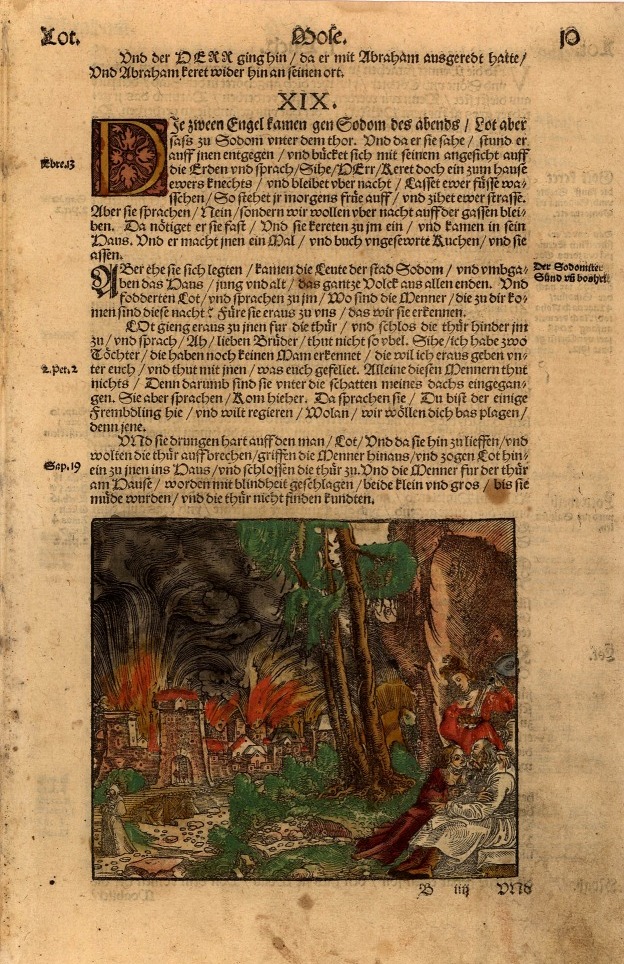 Lot. Mose. 10
Vnd der HERR ging hin / da er mit Abraham ausgeredt hatte /
Vnd Abraham keret wider hin an seinen ort.
XIX.
DJe zween Engel kamen gen Sodom des abends / Lot aber
sass zu Sodom vnter dem thor. Vnd da er sie sahe / stund er
Ebre. 13
auff jnen entgegen / vnd bücket sich mit seinem angesicht auff
die Erden vnd sprach / Sihe / HErr / Keret doch ein zum hause
ewers knechts / vnd bleibet vber nacht / Lasset ewer füsse wa-
sschen / So stehet jr morgens früe auff / vnd zihet ewer strasse.
Aber sie sprachen / Nein / sondern wir wollen vber nacht auff der gassen blei-
ben. Da nötiget er sie fast / Vnd sie kereten zu jm ein / vnd kamen in sein
Haus. Vnd er macht jnen ein Mal / vnd buch vngesewrte Kuchen / vnd sie
assen.
ABer ehe sie sich legten / kamen die Leute der stad Sodom / vnd vmbga-
Der Sodomiter
Sünd vñ bosheit.
ben das Haus / jung vnd alt / das gantze Volck aus allen enden. Vnd
fodderten Lot / vnd sprachen zu jm / Wo sind die Menner / die zu dir ko-
men sind diese nacht? Füre sie eraus zu vns / das wir sie erkennen.
LOt gieng eraus zu jnen fur die thür / vnd schlos die thür hinder jm
zu / vnd sprach / Ah / lieben Brüder / thut nicht so vbel. Sihe / ich habe zwo
Töchter / die haben noch keinen Mam erkennet / die wil ich eraus geben vn-
2. Pet. 2
ter euch / vnd thut mit jnen / was euch gefellet. Alleine diesen Mennern thut
nichts / Denn darumb sind sie vnter die schatten meines dachs eingegan-
gen. Sie aber sprachen / Kom hieher. Da sprachen sie / Du bist der einige
Frembdling hie / vnd wilt regieren / Wolan / wir wöllen dich bas plagen /
denn jene.
VNd sie drungen hart auff den man / Lot / Vnd da sie hin zu lieffen / vnd
wolten die thür auffbrechen / griffen die Menner hinaus / vnd zogen Lot hin-
Sap. 19
ein zu jnen ins Haus / vnd schlossen die thür zu. Vnd die Menner fur der thür
am Hause / worden mit blindheit geschlagen / beide klein vnd gros / bis sie
müde wurden / vnd die thür nicht finden kundten.
B iiij VNd